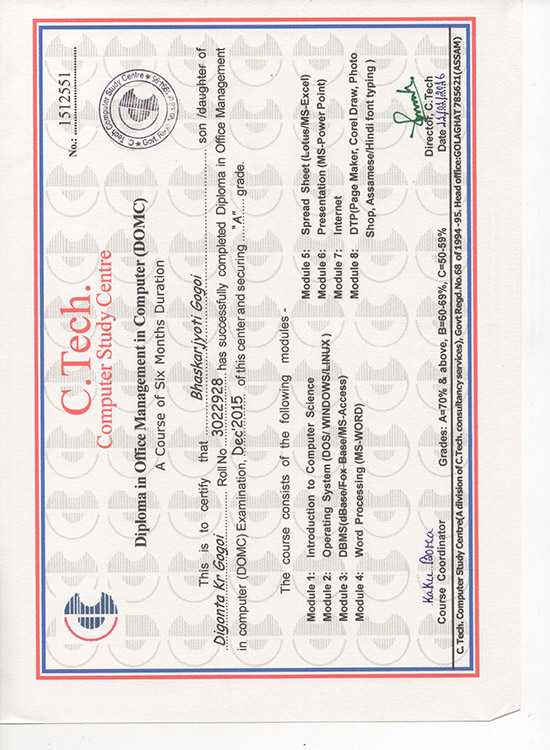 No.: 1512551
C.Tech.
Computer Study Centre
Diploma in Office Management in Computer (DOMC)
A Course of Six Months Duration
C. Tech. Computer Study Centre
This is to certify that Bhaskarjyoti Gogoi son /daughter of
Digonta Kr Gogoi Roll No 3022928 has successfully completed Diploma in Office Management
in computer (DOMC) Examination, Dec'2015 of this center and securing "A" grade.
The course consists of the following modules -
Module 1: Introduction to Computer Science
Module 2: Operating System (DOS/ WINDOWS/LINUX )
Module 3: DBMS(dBase/Fox Base/MS-Access)
Module 4: Word Processing (MS-WORD)
Module 5: Spread Sheet (Lotus/MS-Excel)
Module 6: Presentation (MS-Power Point)
Module 7: Internet
Module 8: DTP(Page Maker, Corel Draw, Photo
Shop, Assamese/Hindi font typing )
Course Coordinator
Grades: A=70% & above, B=60-69%, C=50-59%
Director, C.Tech
Date
C. Tech. Computer Study Centre(A division of C.Tech. consultancy services), Govt Regd.No.68 of 1994 -95. Head office:GOLAGHAT 785621(ASSAM)